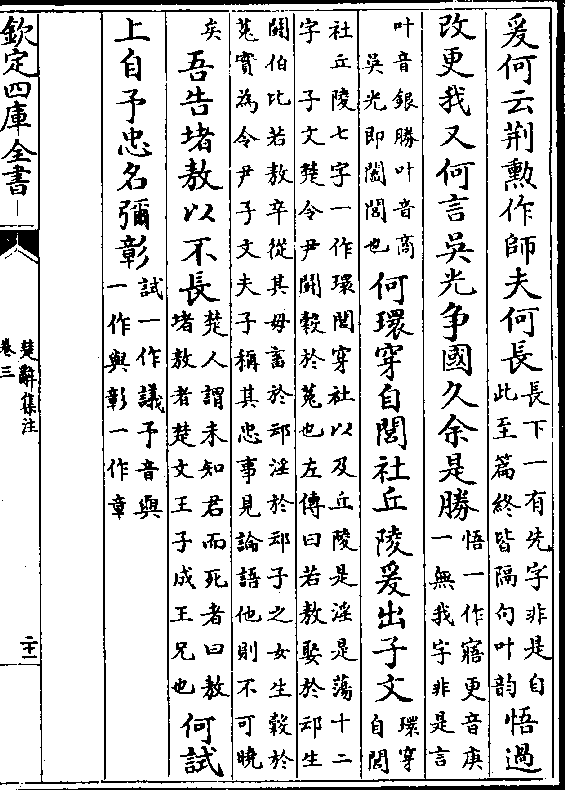 爰何云荆勲作師夫何長長下一有先字非是自此至篇終皆隔句叶韵悟過
改更我又何言吳光争國久余是勝悟一作寤更音庚一無我字非是言
叶音銀勝叶音商吳光即闔閭也何環穿自閭社丘陵爰出子文環穿自閭
社丘陵七字一作環閭穿社以及丘陵是淫是蕩十二
字 子文楚令尹鬭穀於菟也左傳曰若敖娶於䢵生
鬭伯比若敖卒從其母畜於䢵淫於䢵子之女生穀於
菟實為令尹子文夫子稱其忠事見論語他則不可曉
矣吾告堵敖以不長楚人謂未知君而死者曰敖堵敖者楚文王子成王兄也何試
上自予忠名彌彰試一作議予音與一作與彰一作章
欽定四庫全書
楚辭集注
卷三
二十一